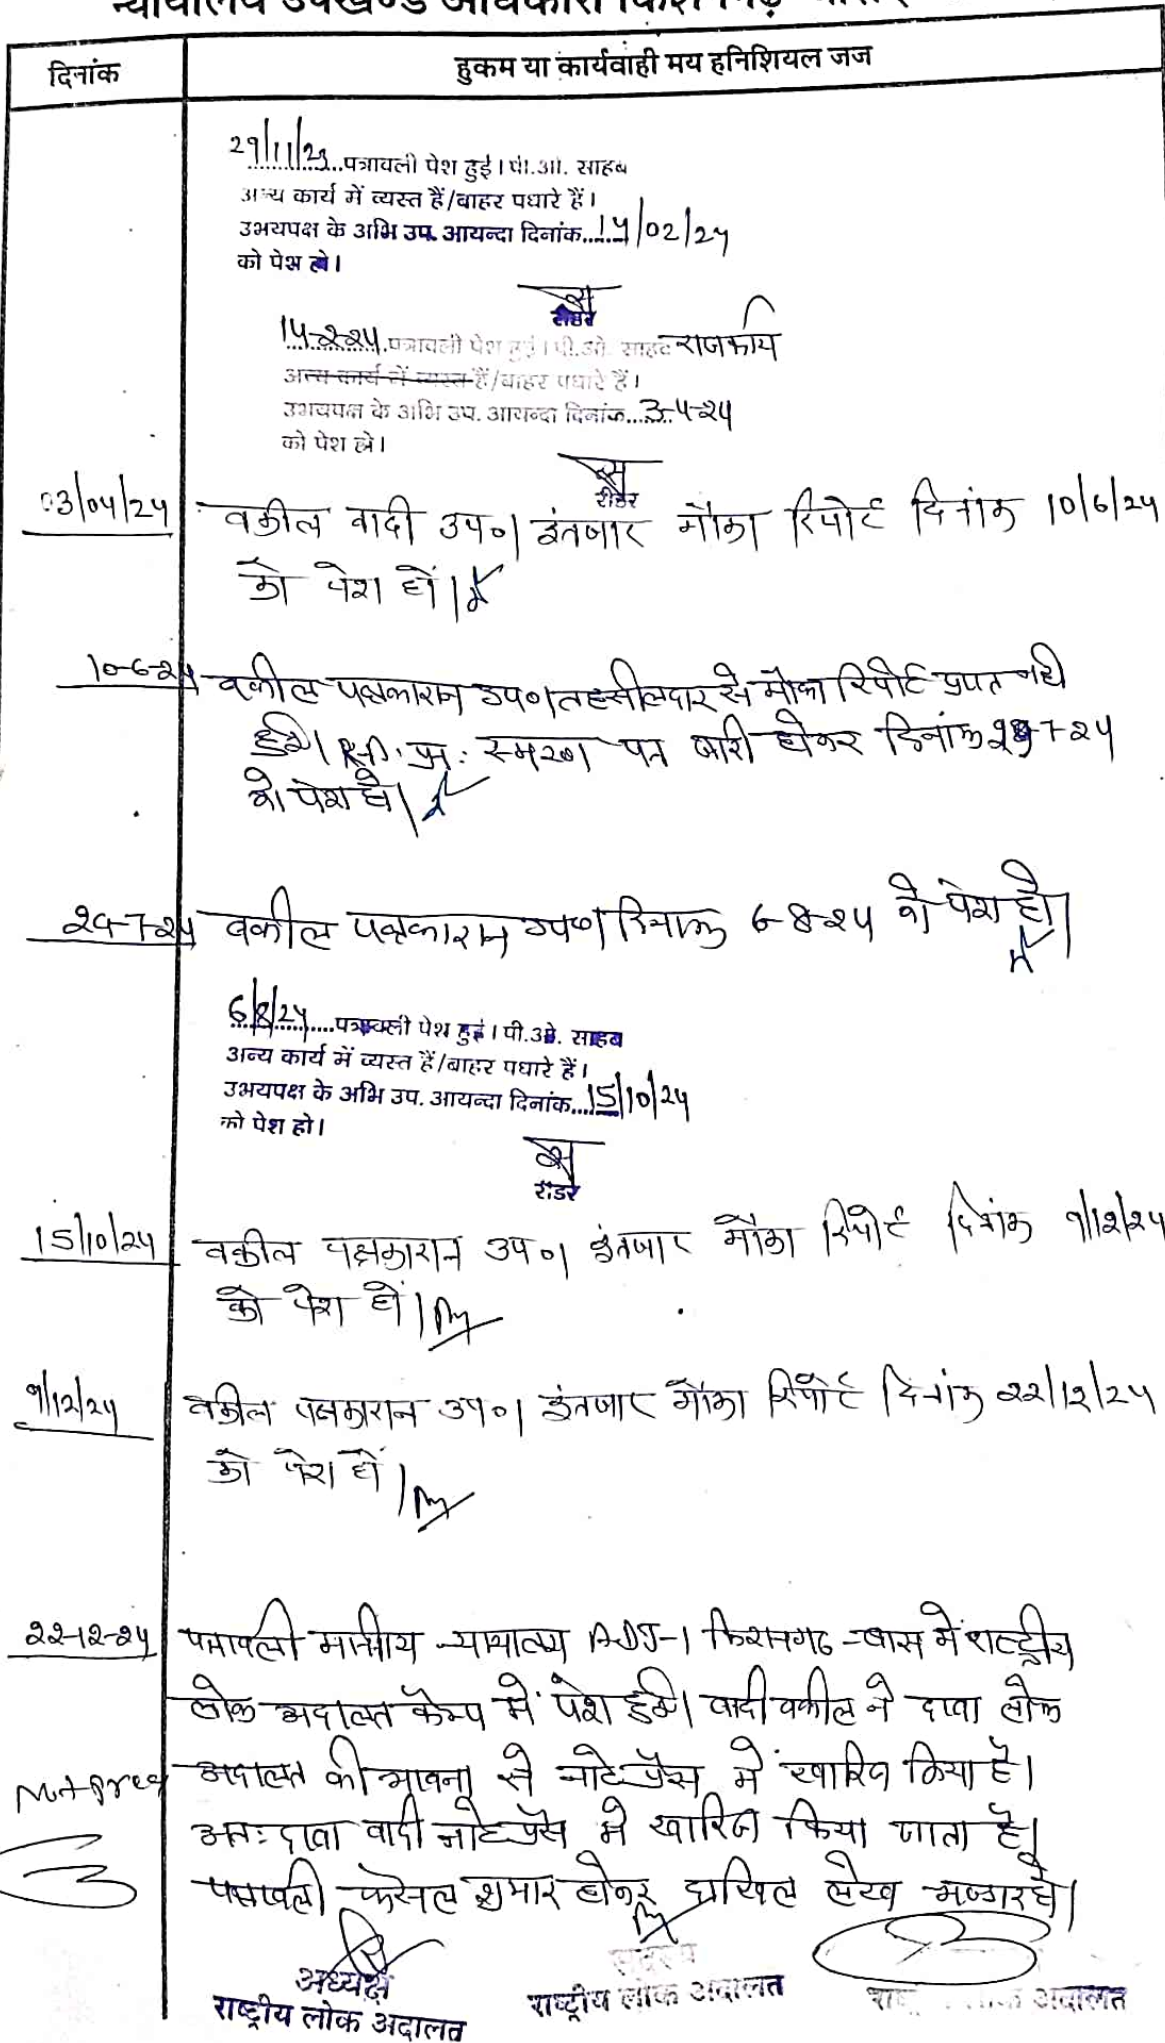 न्यायालय उपखण्ड अधिकारी किशनगढ़
दिनांक
हुकम या कार्यवाही मय हनिशियल जज
29/11/23 पत्रावली पेश हुई। पी.ओ. साहब
अन्य कार्य में व्यस्त हैं/बाहर पधारे हैं।
उभयपक्ष के अभि उप. आयन्दा दिनांक....14/02/24
को पेश हो।
रीडर
14-2-24 पत्रावली पेश हुई। पी.ओ. साहब राजकीय
अन्य कार्य में व्यस्त हैं/बाहर पधारे हैं।
उभयपक्ष के अभि उप. आयन्दा दिनांक....3-4-24
को पेश हो।
रीडर
03/04/24 वकील वादी उप०। इंतजार मौका रिपोर्ट दिनांक 10/6/24
को पेश हों।
10-6-24 वकील पक्षकारान उप०। तहसीलदार से मौका रिपोर्ट प्राप्त नही
हुई। स्मरण पत्र जारी होकर दिनांक 7-24
को पेश हो।
24-7-24 वकील पक्षकारान उप०। दिनांक 6-8-24 को पेश हो।
6/8/24.....पत्रावली पेश हुई। पी.ओ. साहब
अन्य कार्य में व्यस्त हैं/बाहर पधारे हैं।
उभयपक्ष के अभि उप. आयन्दा दिनांक....15/10/24
को पेश हो।
रीडर
15/10/24 वकील पक्षकारान उप०। इंतजार मौका रिपोर्ट दिनांक 9/12/24
को पेश हों।
9/12/24 वकील पक्षकारान उप०। इंतजार मौका रिपोर्ट दिनांक 22/12/24
को पेश हों।
22-12-24 पत्रावली माननीय न्यायालय ADJ-1 किशनगढ-बास में राष्ट्रीय
लोक अदालत कैम्प में पेश हुई। वादी वकील ने दावा लोक
अदालत की भावना से नोट प्रैस में खारिज किया है।
Not press
अतः दावा वादी नोट प्रैस मे खारिज किया जाता है।
पत्रावली फैसल शुमार होकर दाखिल लेख भण्डार हो।
अध्यक्ष
राष्ट्रीय लोक अदालत
सदस्य
राष्ट्रीय लोक अदालत
अदालत